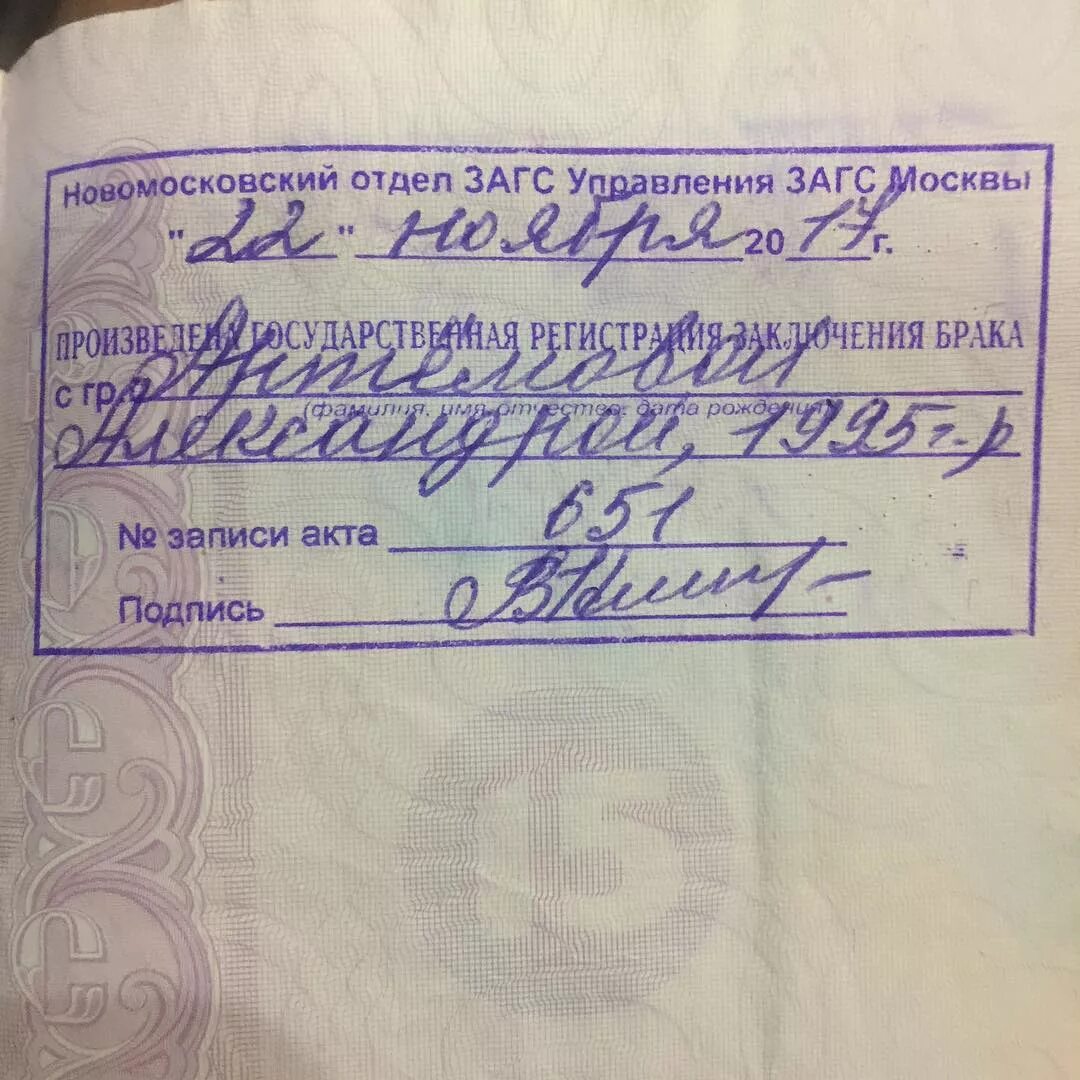 Новомосковский отдел ЗАГС Управления ЗАГС Москвы
"22" ноября 2017г.
ПРОИЗВЕДЕНА ГОСУДАРСТВЕННАЯ РЕГИСТРАЦИЯ ЗАКЛЮЧЕНИЯ БРАКА
с гр. Антемовой
(фамилия, имя, отчество, дата рождения)
Александрой, 1995 г.р
№ записи акта 651
Подпись
15